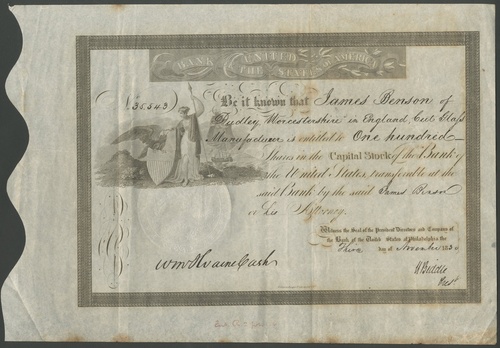 BANK OF THE UNITED STATES OF AMERICA
No 35,543
Be it known that James Benson of
Dudley Worcestershire in England, Cut Glass
Manufacturer is entitled to One hundred
Shares in the Capital Stock of the Bank of
the United States, transferable at the
said Bank by the said James Benson
or his Attorney.
Witness the Seal of the President Directors and Company of
the Bank of the United States at Philadelphia the
day of November 183
Cash
N Biddle
Prest